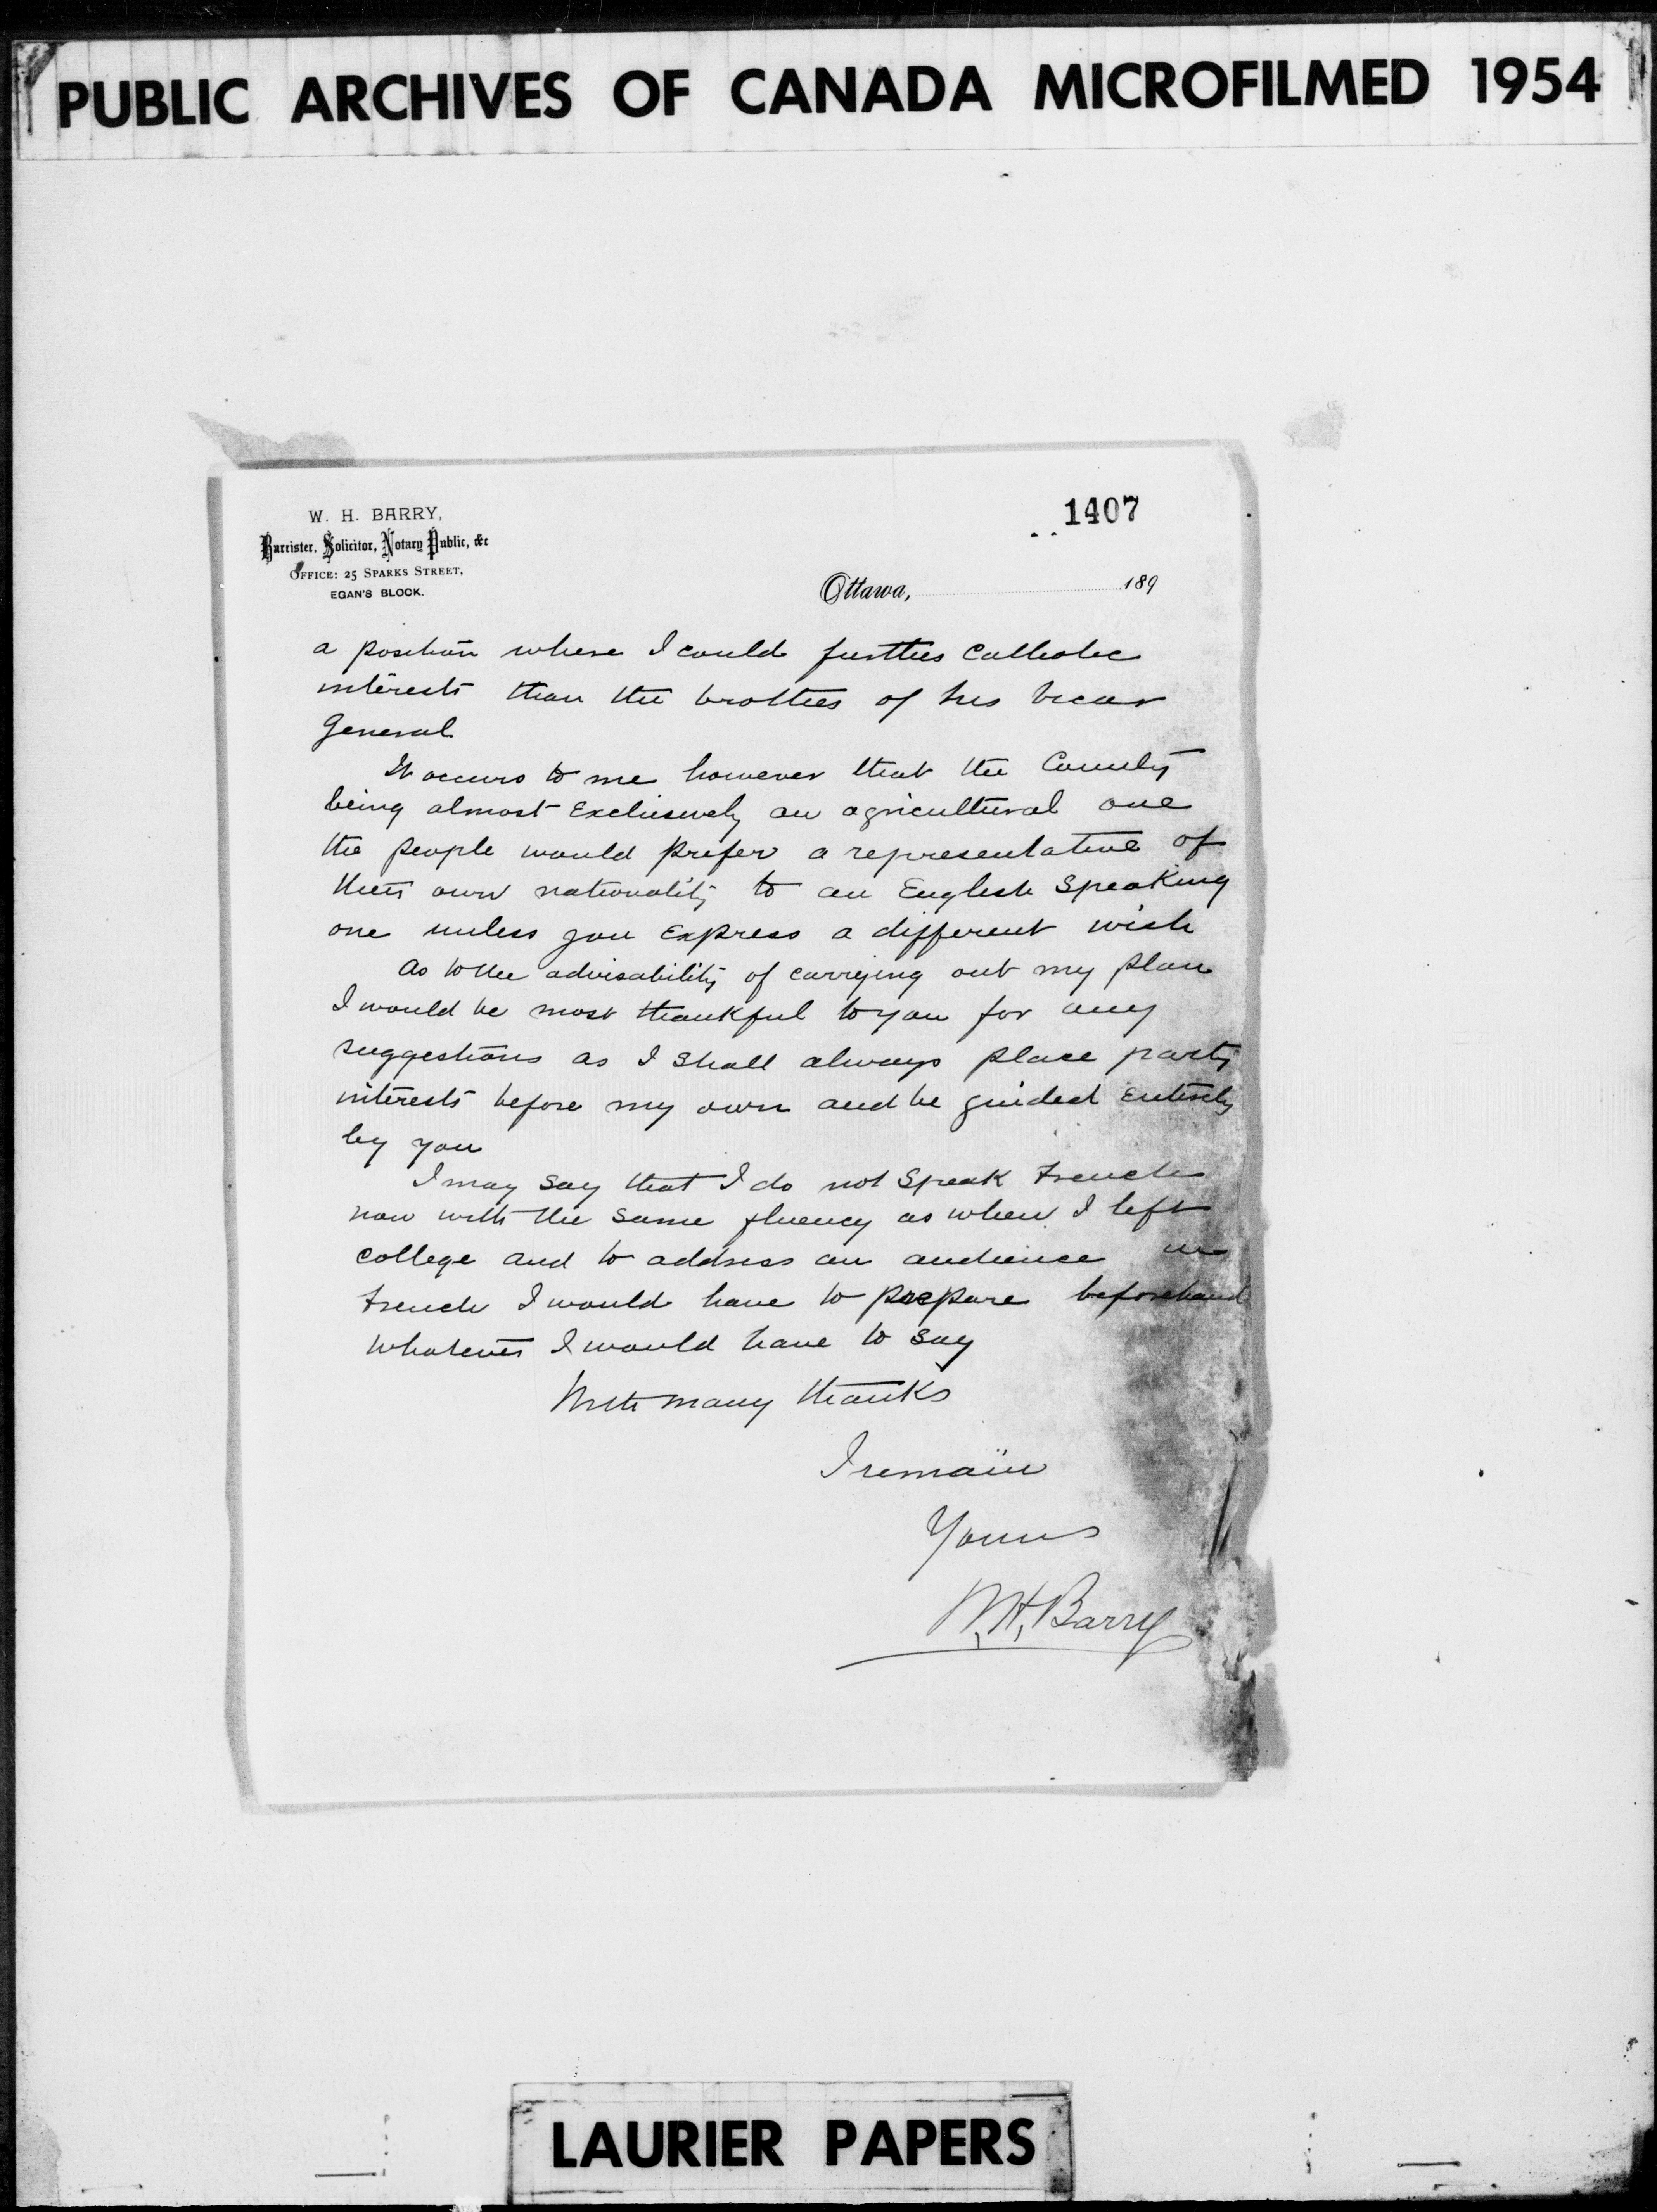 PUBLIC ARCHIVES OF CANADA MICROFILMED 1954
1407
W. H. BARRY,
Barrister, Solicitor, Notary Public, &c
OFFICE: 25 SPARKS STREET,
EGAN'S BLOCK.
Ottawa, 189
a position where I could further Catholic
interests than the brother of his vicar
General
It occurs to me however that the County
being almost exclusively an agricultural one
the people would prefer a representative of
their own nationality to an English speaking
one unless you express a different wish
As to the advisability of carrying out my plan
I would be most thankful to you for any
suggestions as I shall always place party
interests before my own and be guided entirely
by you
I may say that I do not speak French
now with the same fluency as when I left
college and to address an audience in
French I would have to prepare beforehand
whatever I would have to say
With many thanks
I remain
Yours
W. H. Barry
LAURIER PAPERS